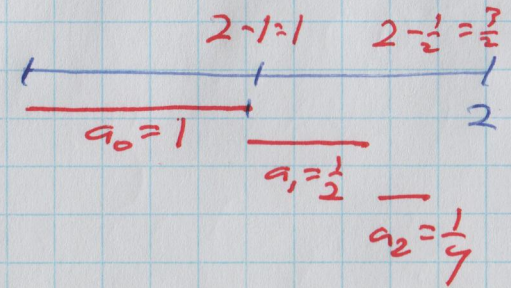 2-1=1 2-1/2=3/2
2
a₀=1
a₁=1/2
a₂=1/4